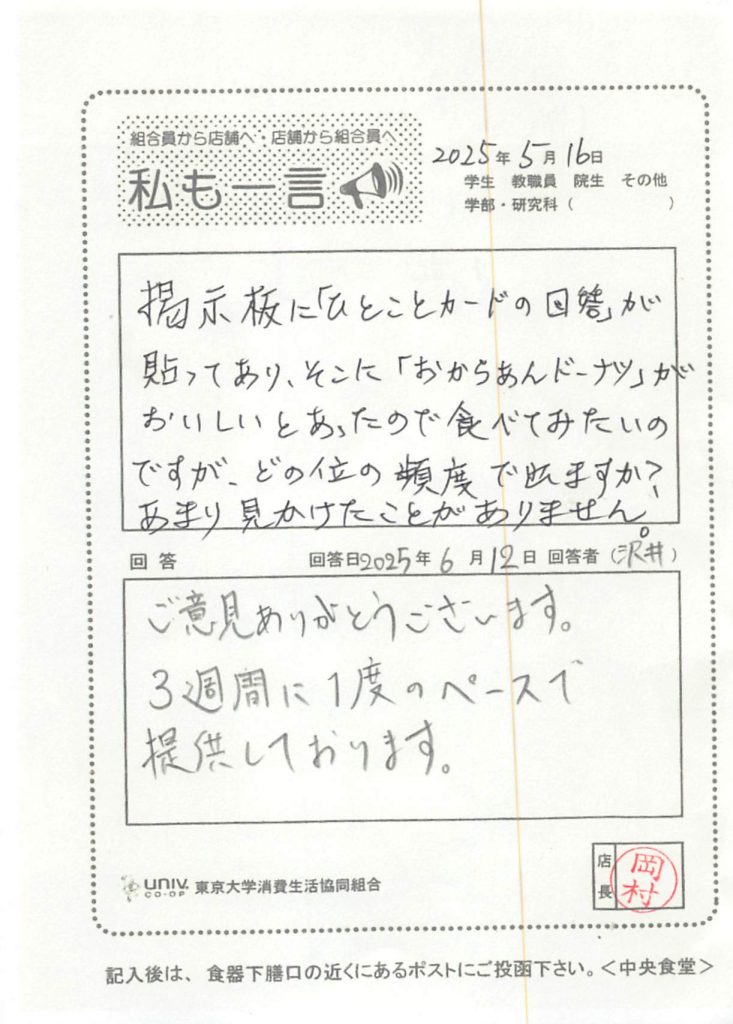 組合員から店舗へ・店舗から組合員へ
私も一言
2025年5月16日
学生 教職員 院生 その他
学部・研究科( )
掲示板に「ひとことカードの回答」が
貼ってあり、そこに「おからあんドーナツ」が
おいしいとあったので食べてみたいの
ですが、どの位の頻度で出ますか?
あまり見かけたことがありません。
回答 回答日2025年6月12日 回答者(沢井)
ご意見ありがとうございます。
3週間に1度のペースで
提供しております。
UNIV. CO-OP 東京大学消費生活協同組合
店長 岡村
記入後は、食器下膳口の近くにあるポストにご投函下さい。<中央食堂>